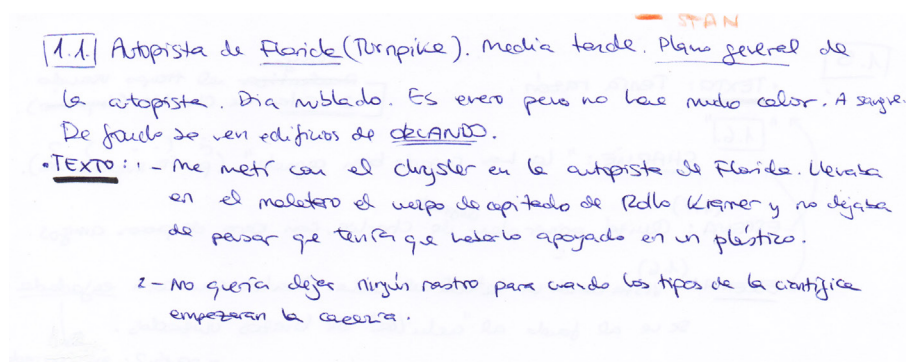 — STAN
1.1. Autopista de Florida (Turnpike). Media tarde. Plano general de
la autopista. Dia nublado. Es enero pero no hace mucho calor. A sangre.
De fondo se ven edificios de ORLANDO.
• TEXTO: 1 - Me metí con el chrysler en la autopista de Florida. Llevaba
en el maletero el cuerpo decapitado de Rollo Kramer y no dejaba
de pensar que tenía que haberlo apoyado en un plástico.
2 - No quería dejar ningún rastro para cuando los tipos de la científica
empezaran la cacería.